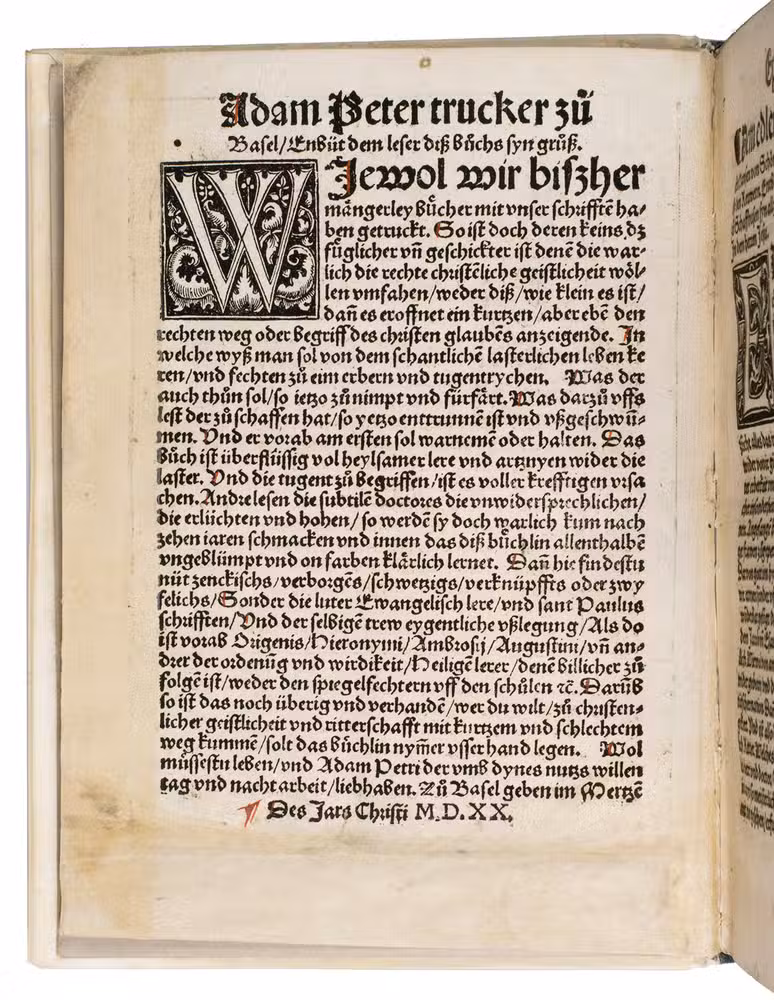 Adam Peter trucker zů
Basel/Enbüt dem leser diß bůchs syn grůß.
WJewol wir biszher
mängerley bücher mit vnser schrifftẽ ha-
ben getruckt. So ist doch deren keins, dz
füglicher vñ geschickter ist denẽ die war-
lich die rechte christẽliche geistlicheit wöl-
len vmfahen/weder diß/wie klein es ist/
dañ es eroffnet ein kurtzen/aber ebẽ den
rechten weg oder begriff des christen glaubẽs anzeigende. Jn
welche wyß man sol von dem schantlichẽ lasterlichen lebẽ ke
ren/vnd fechten zů eim erbern vnd tugentrychen. Was der
auch thůn sol/so ietzo zůnimpt vnd fürfärt. Was darzů vffs
lest der zůschaffen hat/so yetzo enttrunnẽ ist vnd vßgeschwũ-
men. Vnd er vorab am ersten sol warnemẽ oder halten. Das
Bůch ist überflüssig vol heylsamer lere vnd artznyen wider die
laster. Vnd die tugent zů begriffen/ist es voller krefftigen vrsa
chen. Andre lesen die subtilẽ doctores die vnwidersprechlichen/
die erlüchten vnd hohen/so werdẽ sy doch warlich kum nach
zehen iaren schmacken vnd innen das diß büchlin allenthalbẽ
vngeblümpt vnd on farben klärlich lernet. Dañ hie findestu
nüt zenckischs/verborgẽs/schwetzigs/verknüpffts oder zwy
felichs/Sonder die luter Ewangelisch lere/vnd sant Paulus
schrifften/Vnd der selbigẽ trew eygentliche vßlegung/Als do
ist vorab Origenis/Hieronymi/Ambrosij/Augustini/vñ an-
drer der ordenũg vnd wirdikeit/Heiligẽ lerer/denẽ billicher zů
folgẽ ist/weder den spiegelfechtern vff den schůlen ꝛc̃. Darũb
so ist das noch überig vnd verhandẽ/wer du wilt/zů christen-
licher geistlicheit vnd ritterschafft mit kurtzem vnd schlechtem
weg kummẽ/solt das büchlin nym̃er vsser hand legen. Wol
müssestu leben/vnd Adam Petri der vmb dynes nutzs willen
tag vnd nacht arbeit/liebhaben. Zů Basel geben im Mertzẽ
Des Jars Christi M.D.XX.